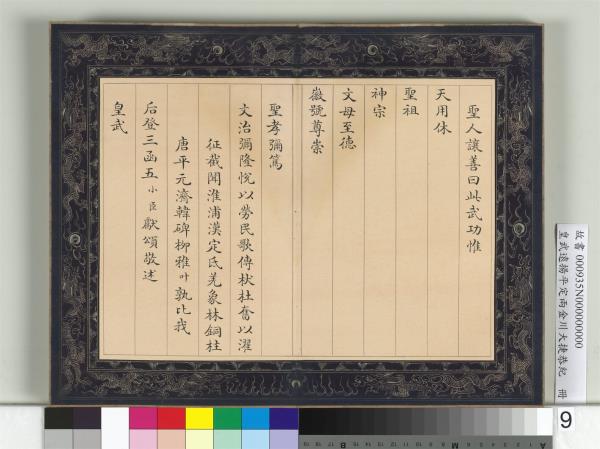 聖人讓善曰此武功惟
天用休
聖祖
神宗
文母至德
徽號尊崇
聖孝彌篤
文治彌隆悅以勞民歌傳杕杜奮以濯
征截聞淮浦漢定氐羌象林銅柱
唐平元濟韓碑柳雅叶孰比我
后登三函五小臣獻頌敬述
皇武
故書 000935N000000000
皇武遠揚平定兩金川大捷恭紀 冊
9